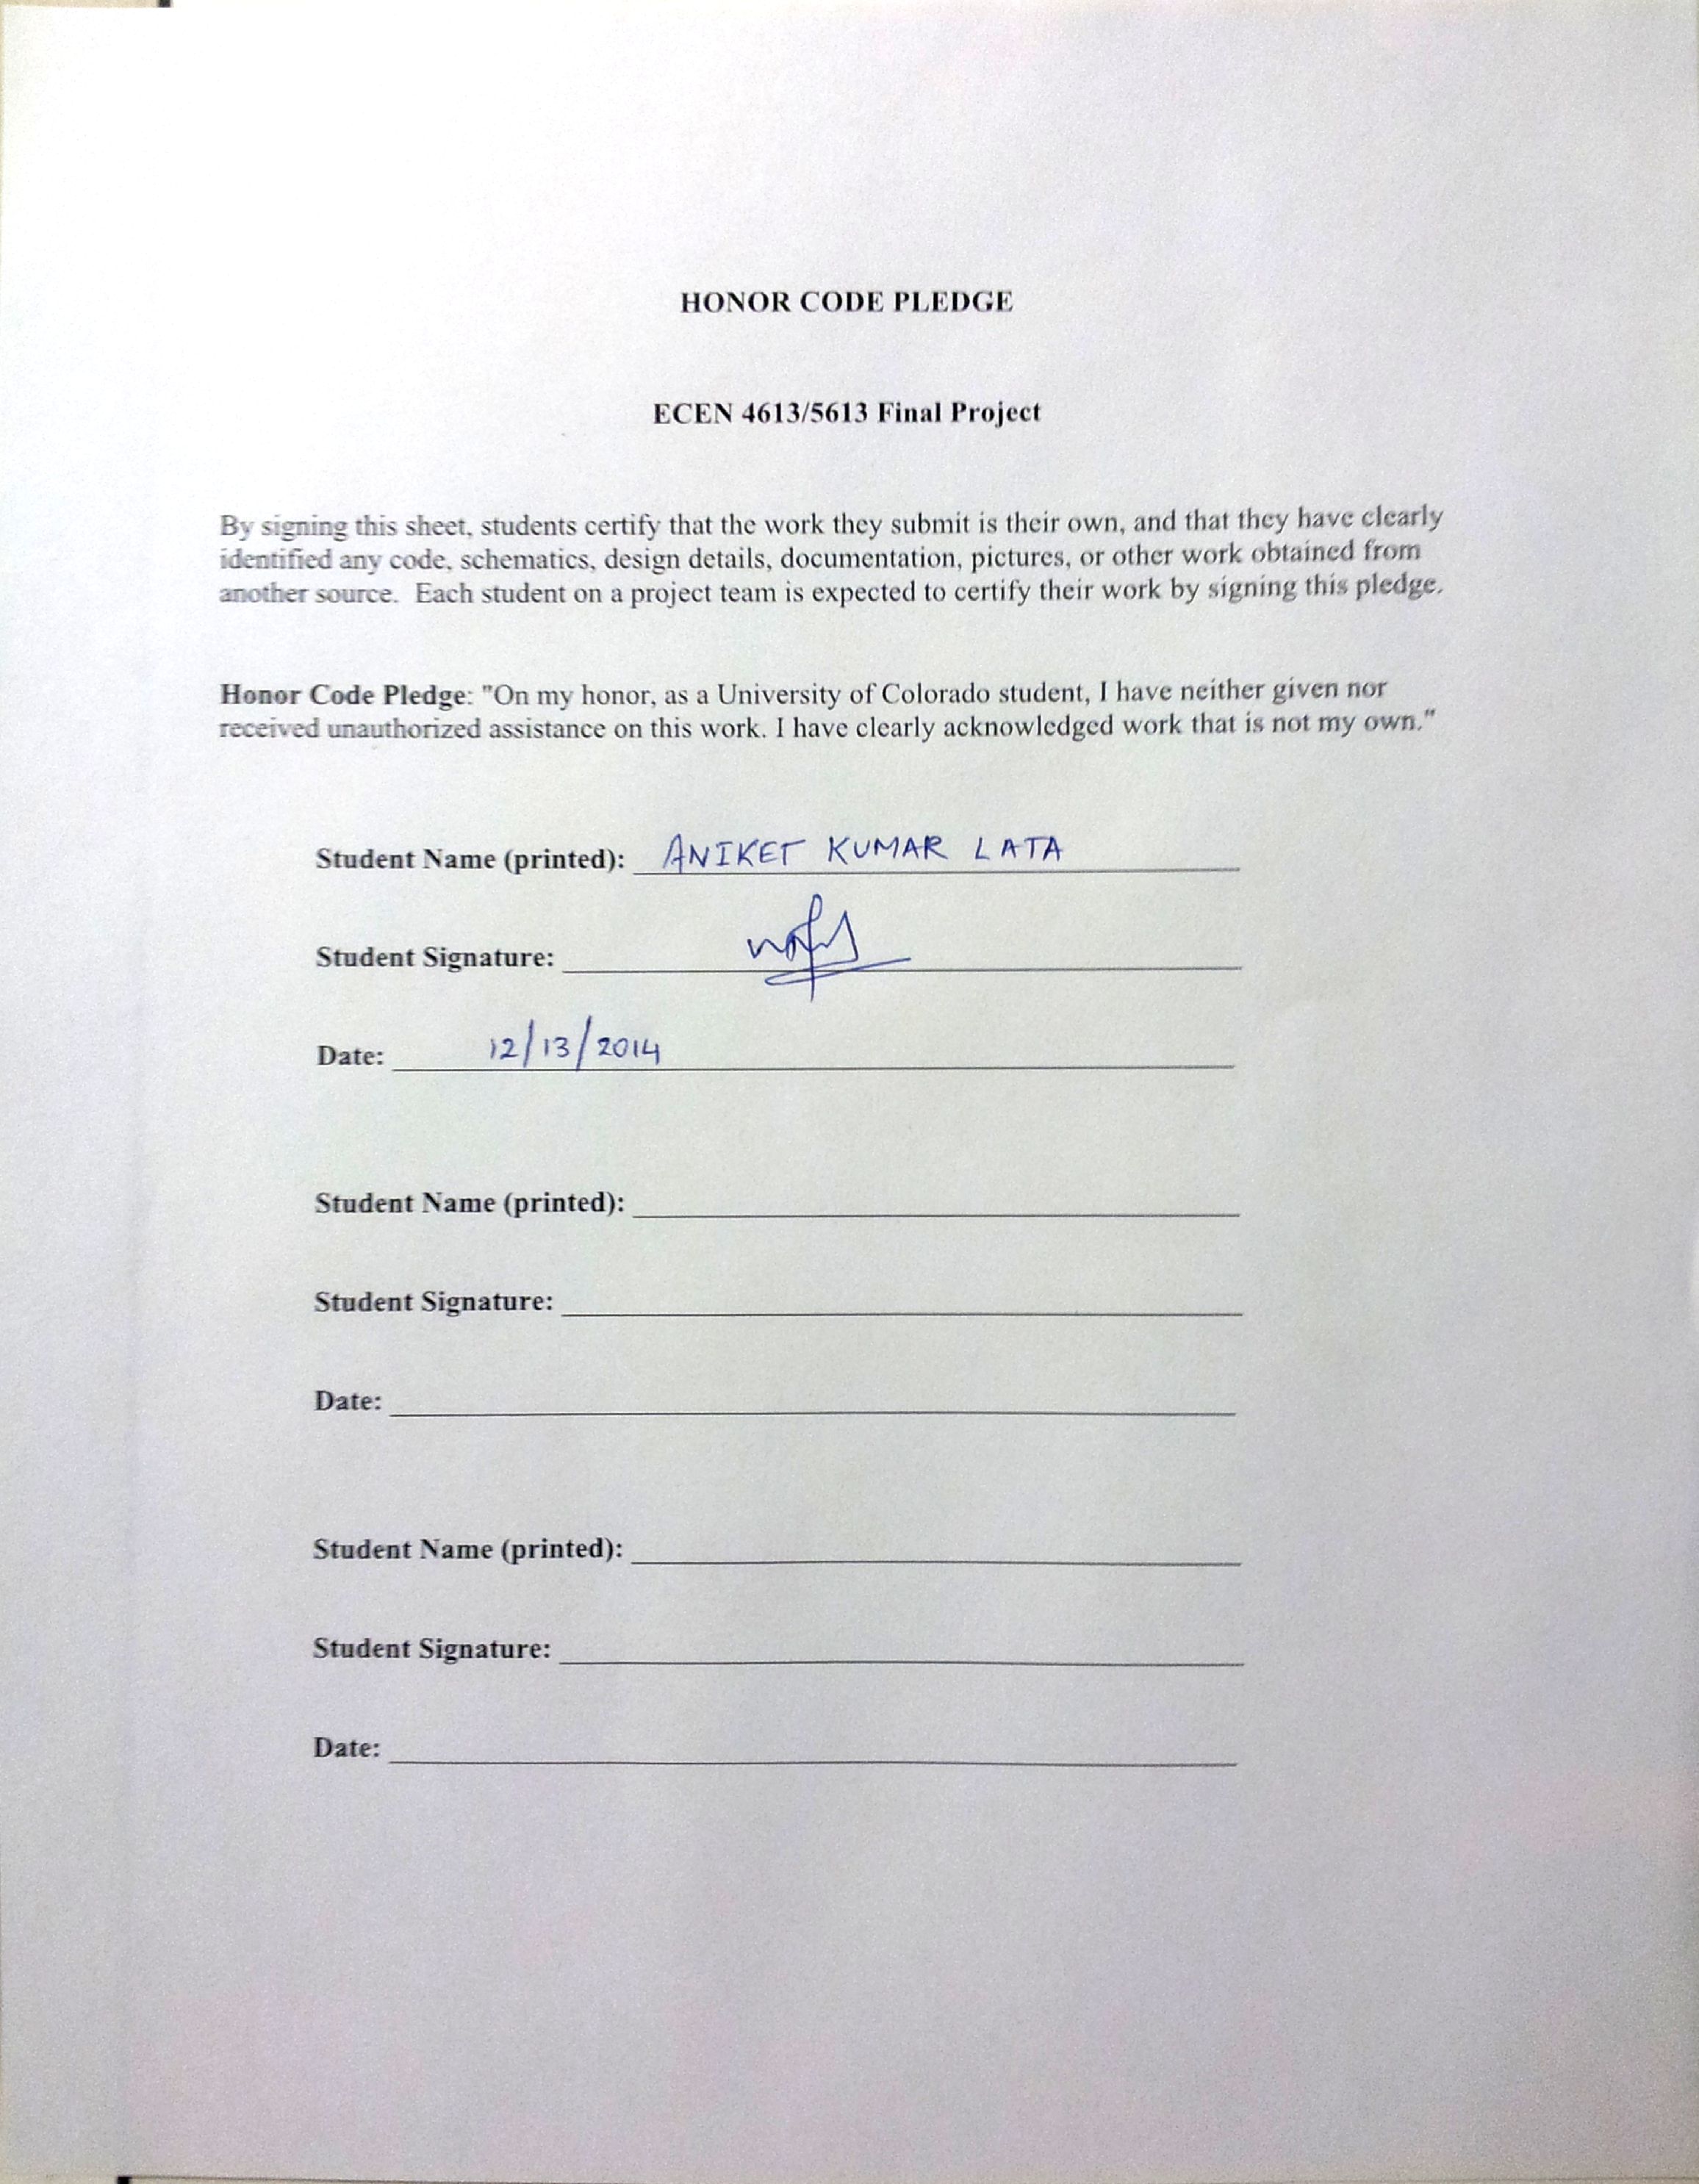 HONOR CODE PLEDGE
ECEN 4613/5613 Final Project
By signing this sheet, students certify that the work they submit is their own, and that they have clearly
identified any code, schematics, design details, documentation, pictures, or other work obtained from
another source.  Each student on a project team is expected to certify their work by signing this pledge.
Honor Code Pledge: "On my honor, as a University of Colorado student, I have neither given nor
received unauthorized assistance on this work. I have clearly acknowledged work that is not my own."
Student Name (printed): ANIKET KUMAR LATA
Student Signature:
Date: 12/13/2014
Student Name (printed):
Student Signature:
Date:
Student Name (printed):
Student Signature:
Date: